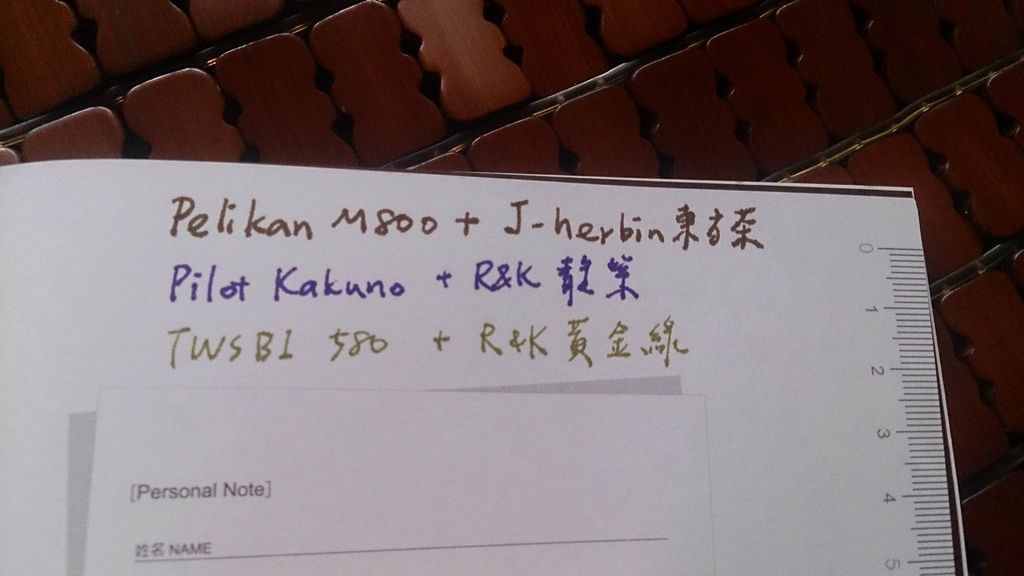 Pelikan M800 + J-herbin 東方茶
Pilot Kakuno + R&K 靛紫
TWSBI 580 + R&K 黃金綠
[Personal Note]
姓名 NAME
0
1
2
3
4
5